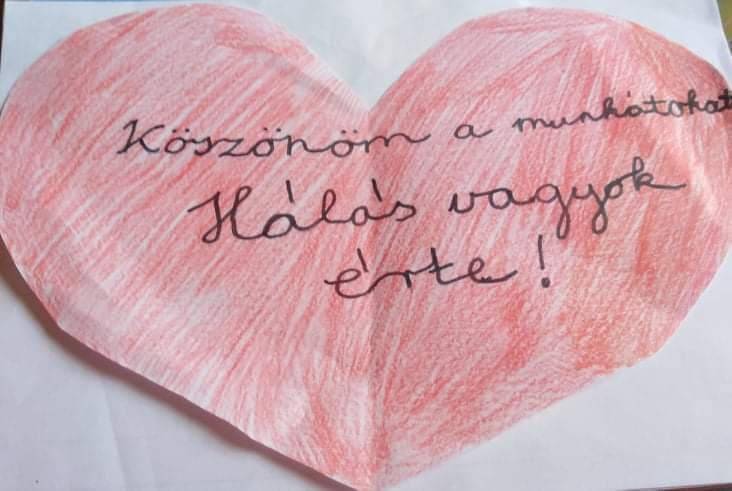 Köszönöm a munkátokat
Hálás vagyok
érte!